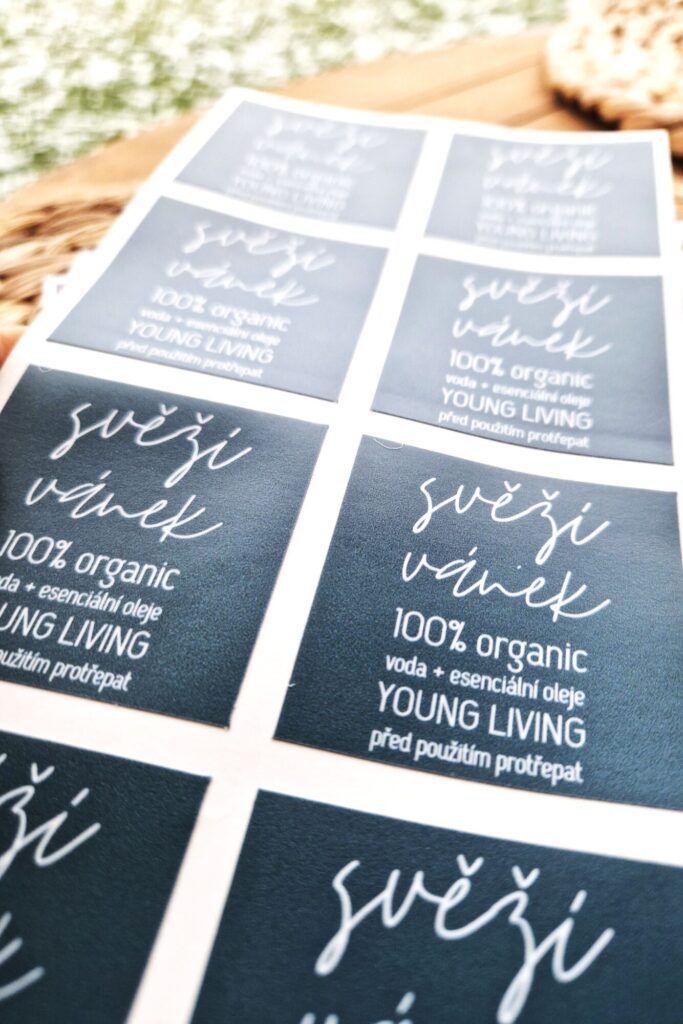 svěží
vánek
100% organic
voda + esenciální oleje
YOUNG LIVING
před použitím protřepat
svěží
vánek
100% organic
voda + esenciální oleje
YOUNG LIVING
svěží
vánek
100% organic
voda + esenciální oleje
YOUNG LIVING
před použitím protřepat
svěží
vánek
100% organic
voda + esenciální oleje
YOUNG LIVING
před použitím protřepat
svěží
vánek
100% organic
da + esenciální oleje
UNG LIVING
užitím protřepat
svěží
vánek
100% organic
voda + esenciální oleje
YOUNG LIVING
před použitím protřepat
svěží